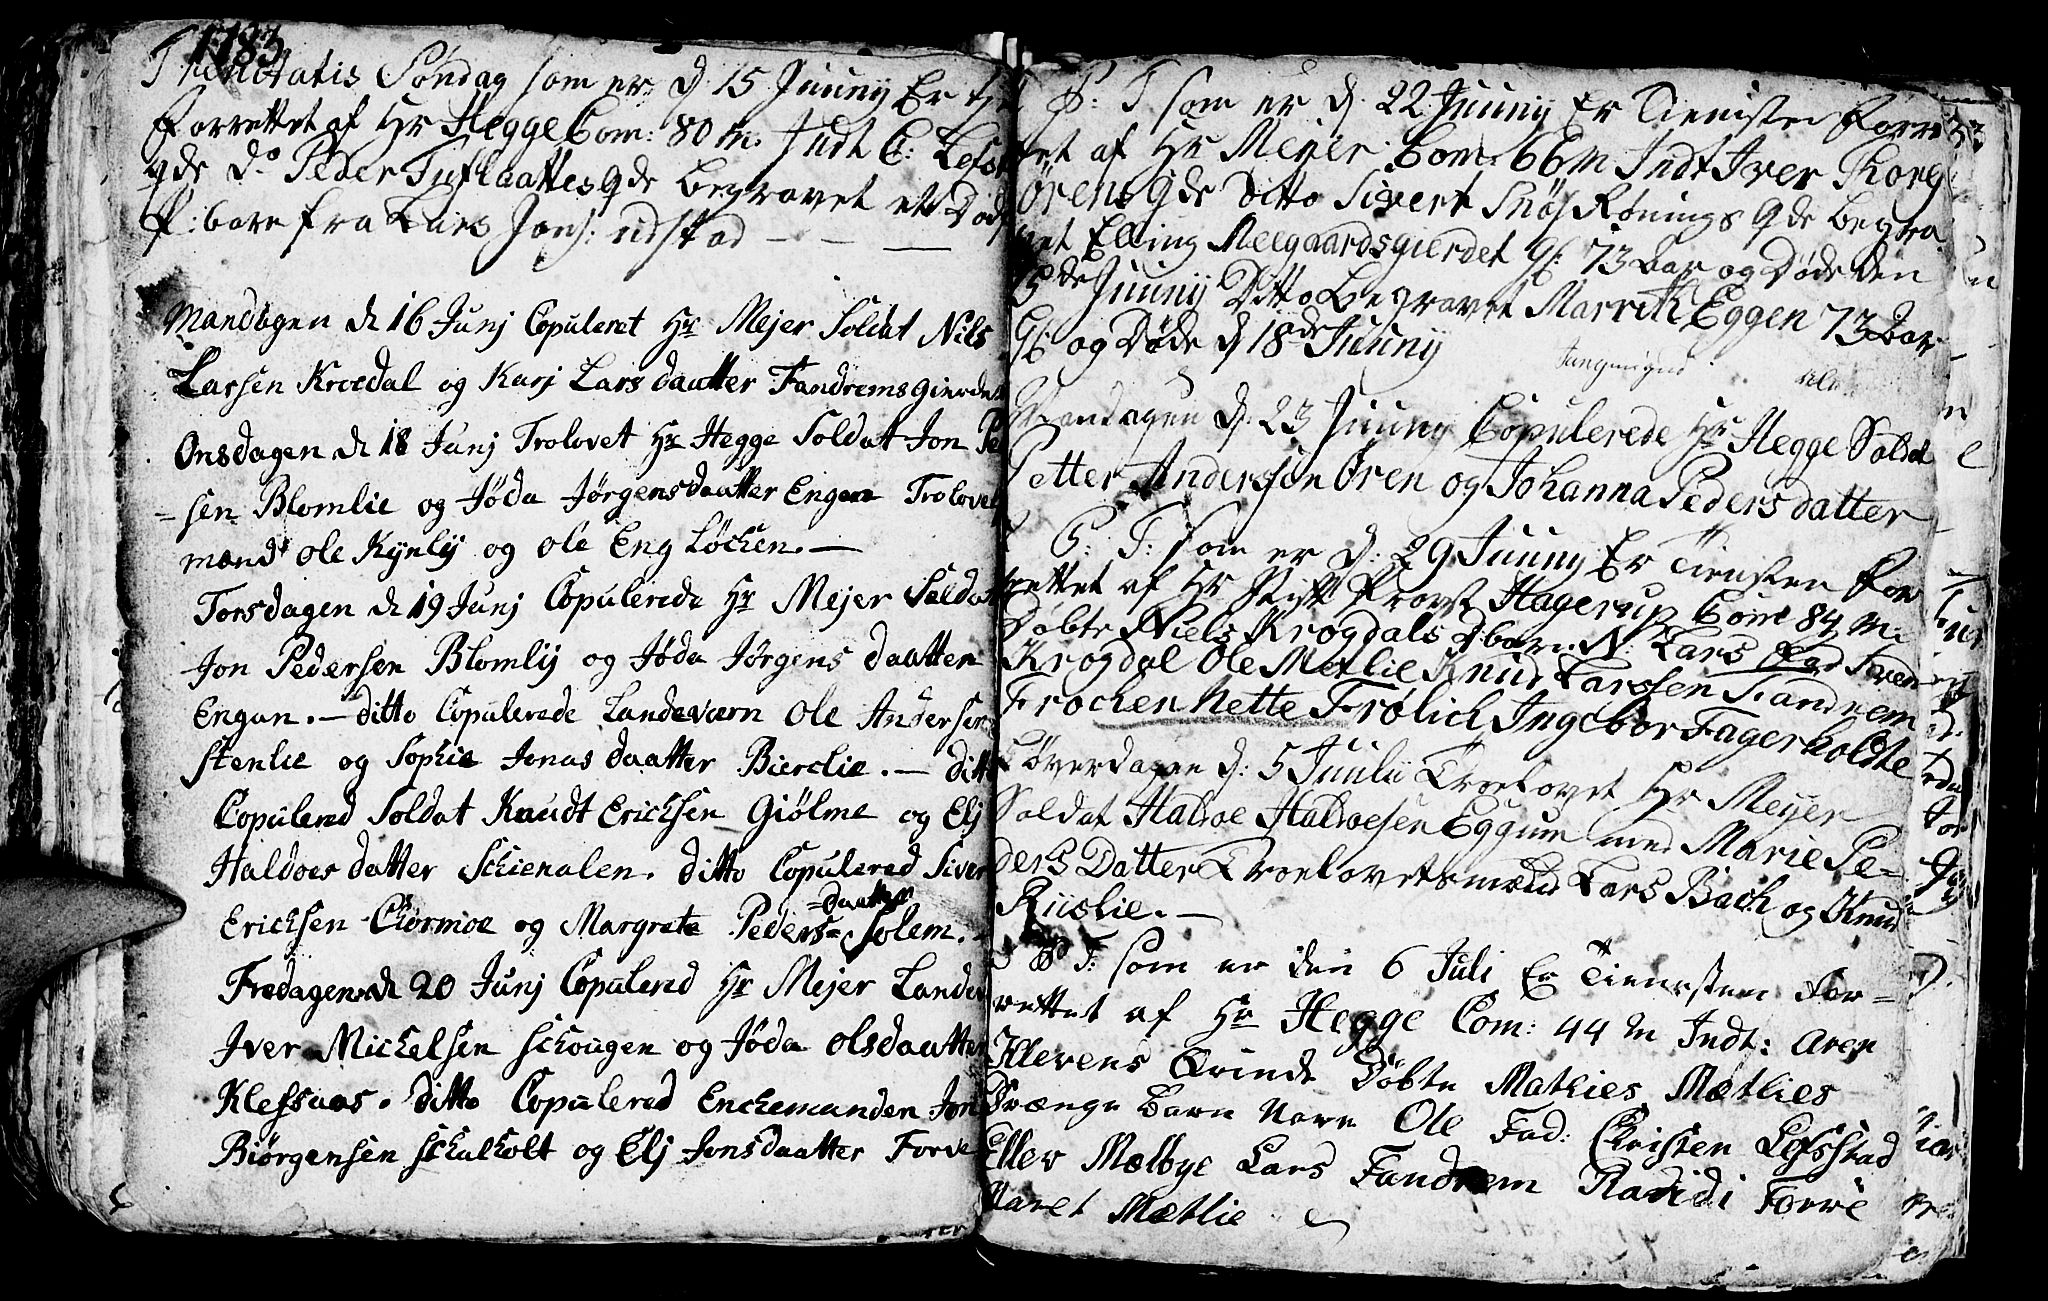 1783
Trinitatis Söndag som er d 15 Juuny Er
Forrettet af Hr Hegge Com: 80 m. Indt C: Lefst
qde do Peder Tuflaattes qde begravet et Död
f: barn fra Lars Jons: udstad — — —
Mandagen d 16 Junj Copuleret Hr Mejer Soldat Nils
Larsen Kroedal og Karj Larsdaatter Fandremsgierde
Onsdagen d 18 Junj Trolovet Hr Hegge Soldat Jon Pe
=sen Blomlie og Jöda Jörgensdaatter Engan Trolovet
mand Ole Kynlij og Ole Eng Löchen.—
Torsdagen d 19 Junj Copulerede Hr Mejer Soldat
Jon Pedersen Blomlij og Jöda Jörgens daatter
Engan.— ditto Copulerede Landeværn Ole Andersen
Stenlie og Sophie Jonas daatter Bierclie.— ditto
Copulered Soldat Knudt Ericksen Giölme og Elj
Haldoes datter Schienalen. ditto Copulered Siver
Ericksen Chormoe og Margrete Peders= =daatter Solem.
Fredagen d 20 Junj Copulered Hr Mejer Lande
Iver Mickelsen Schougen og Jöda Olsdaatter
Klefsaas. ditto Copulered Enchemanden Jon
Biörgensen Schulholt og Elj Jonsdaatter Forve
S: T som er d. 22 Juuny Er Tienisten Forre
tet af Hr Meyer Com: 66 m Indt Iver Korg
Örens qde Ditto Sivert Snös Rønings qde begra
vet Elling Melgaardsgierdet Gl: 73 Aar og Döde den
15de Juuny Ditto begravet Marrith Eggen 73 Aar
Gl: og Döde d 18de Juuny
Mandagen d. 23 Juuny Copulerede Hr Hegge Soldat
Petter Anderssen Ören og Johanna Pedersdatter
S: T: som er d: 29 Juuny Er Tiensten For
rettet af Hr Stift Provst Hagerup Com 84 m:
Döbte Niels Krogdals d: barn N: Lars Fad Søren
Krogdal Ole Metlie Knud Larssen Fandrem
Frochen Nette Frölich Ingebor Fagerholdte
Löverdagen d: 5 Juuly Troelovet Hr Meyer
Soldat Haldoe Haldoesen Eggum med Marie Pe=
ders Datter Troelovetsmænd Lars Bach og Knud
Riislie.—
S T: som er den 6 Juli Er Tienesten For=
rettet af Hr Hegge Com: 44 m Indt: Aren
Klevens Qvinde Döbte Mathies Mætlies
Drænge Barn Navn Ole Fad: Christen Lefsstad
Eller Mælbye Lars Fandrem Randi Forre
Maret Mætlie